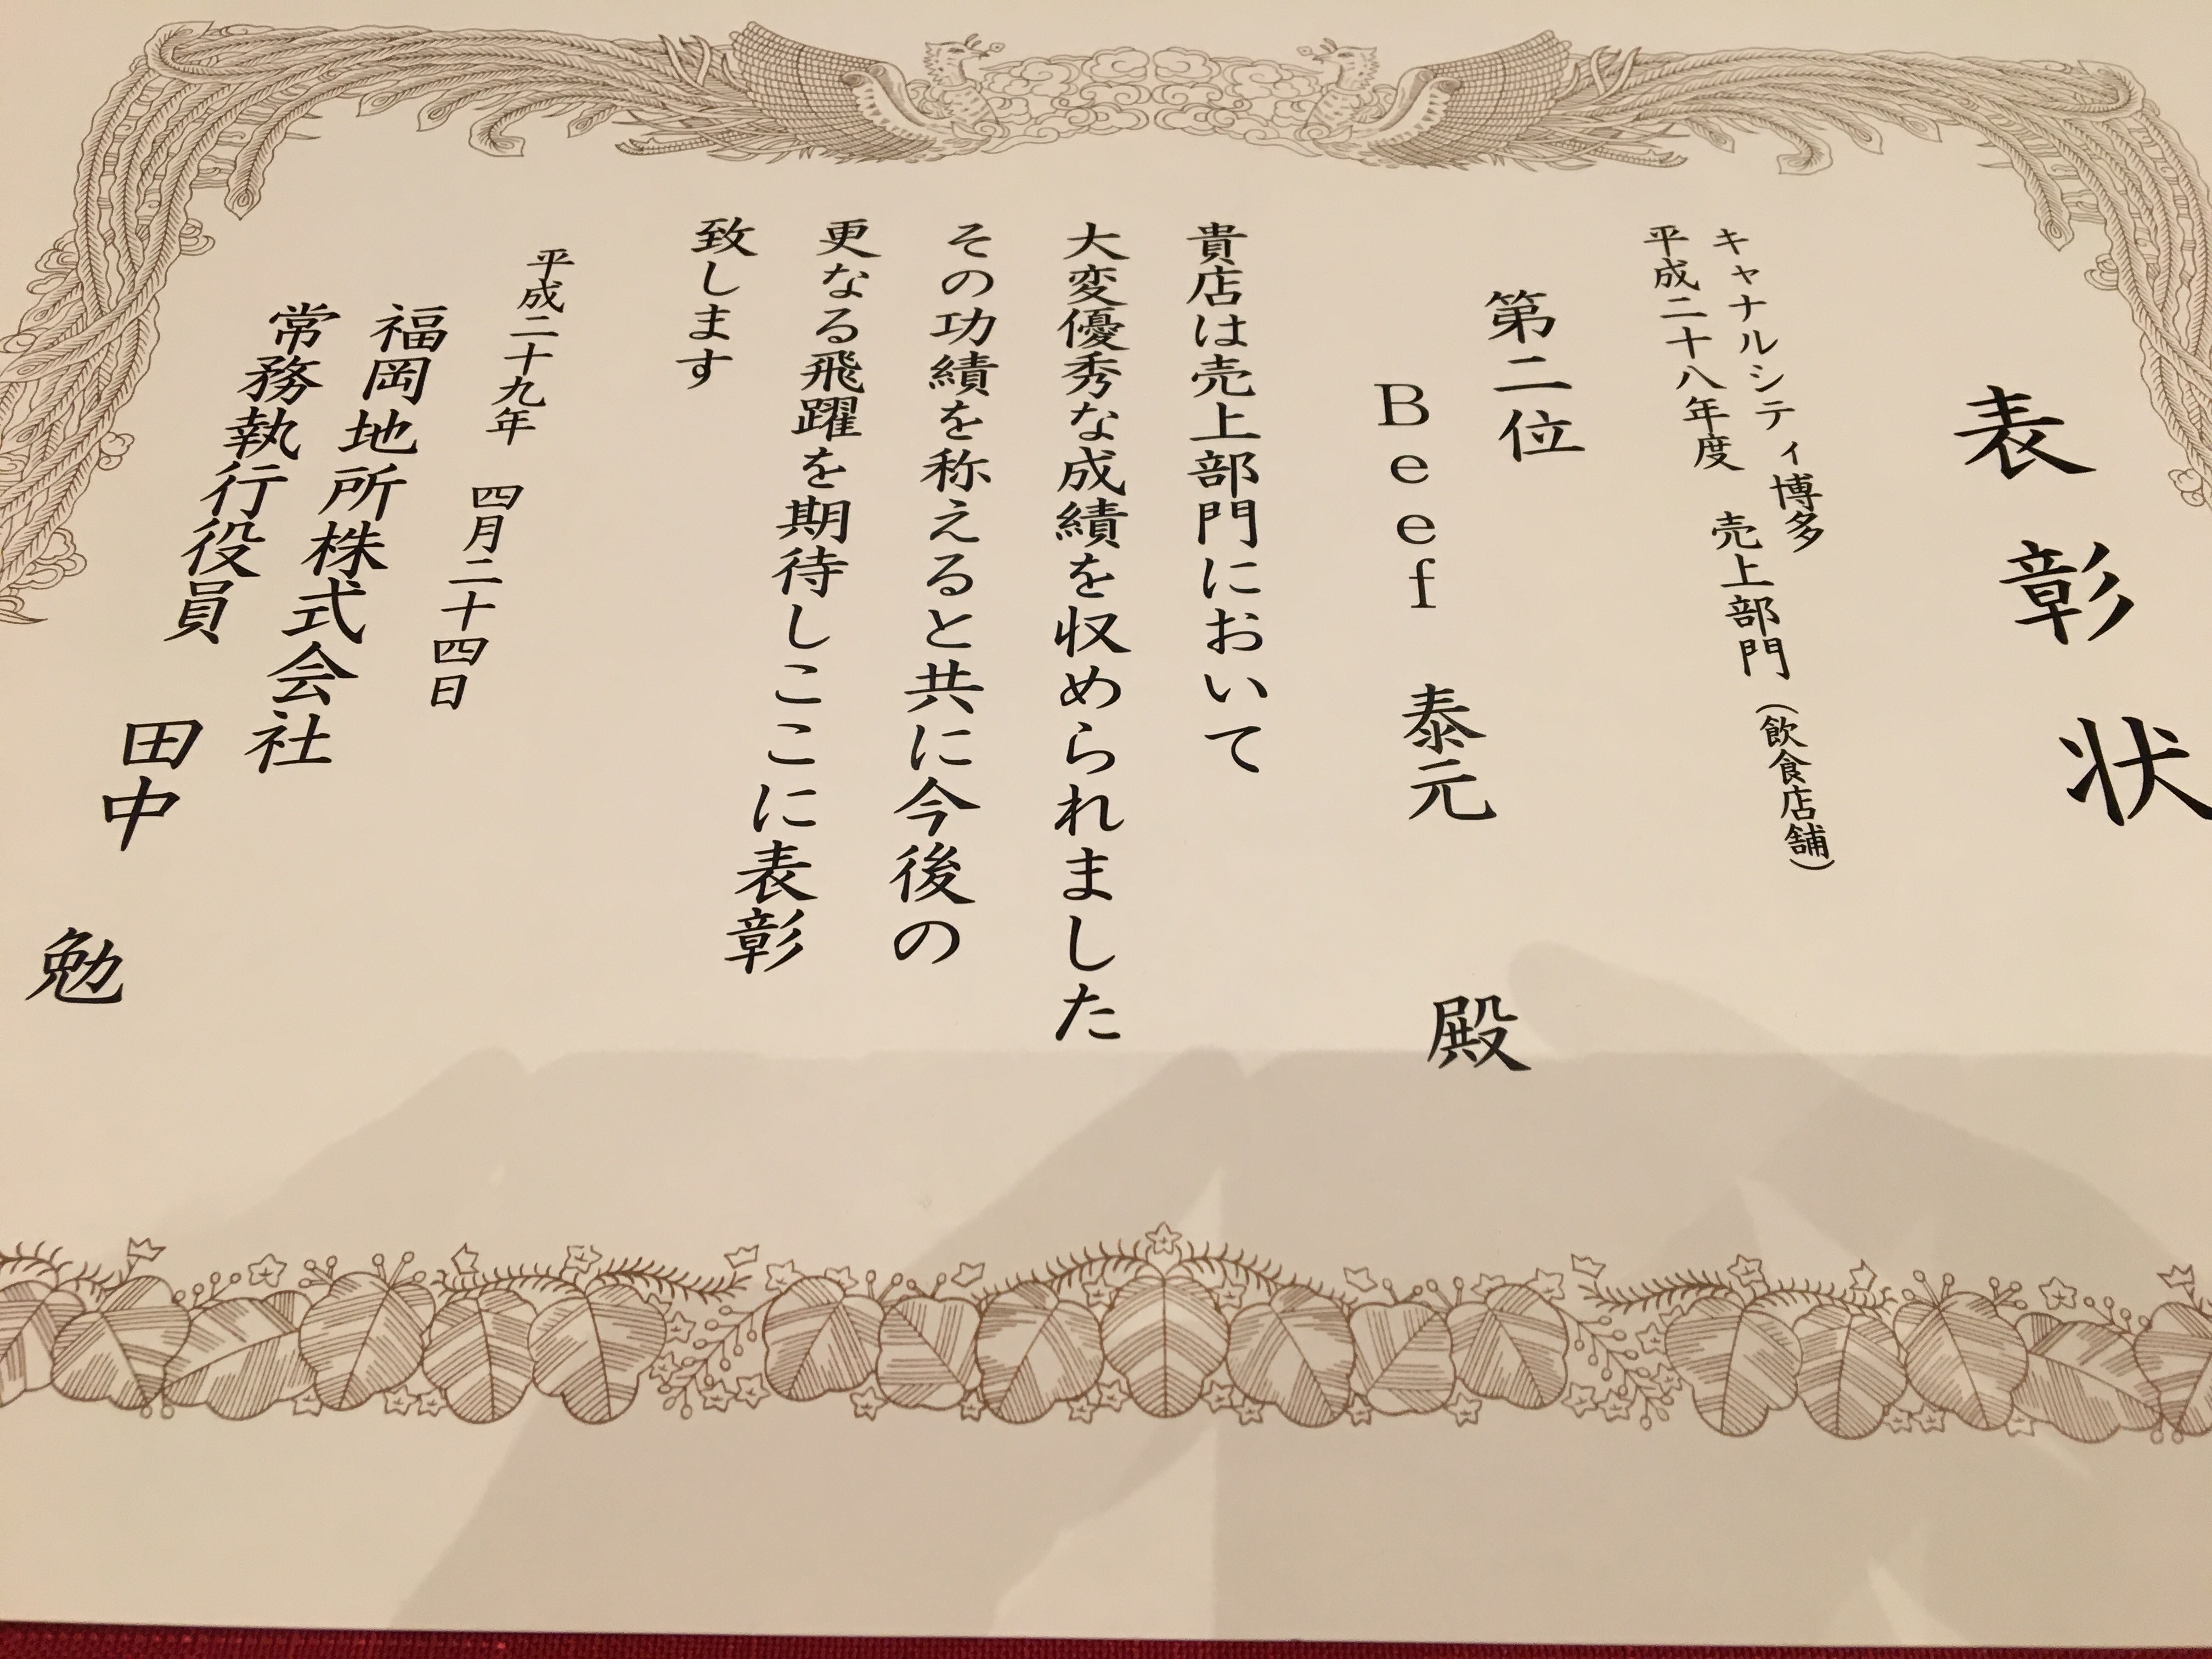 表彰状
キャナルシティ博多
平成二十八年度　売上部門（飲食店舗）
第二位
Ｂｅｅｆ　泰元　殿
貴店は売上部門において
大変優秀な成績を収められました
その功績を称えると共に今後の
更なる飛躍を期待しここに表彰
致します
平成二十九年　四月二十四日
福岡地所株式会社
常務執行役員　田中　勉